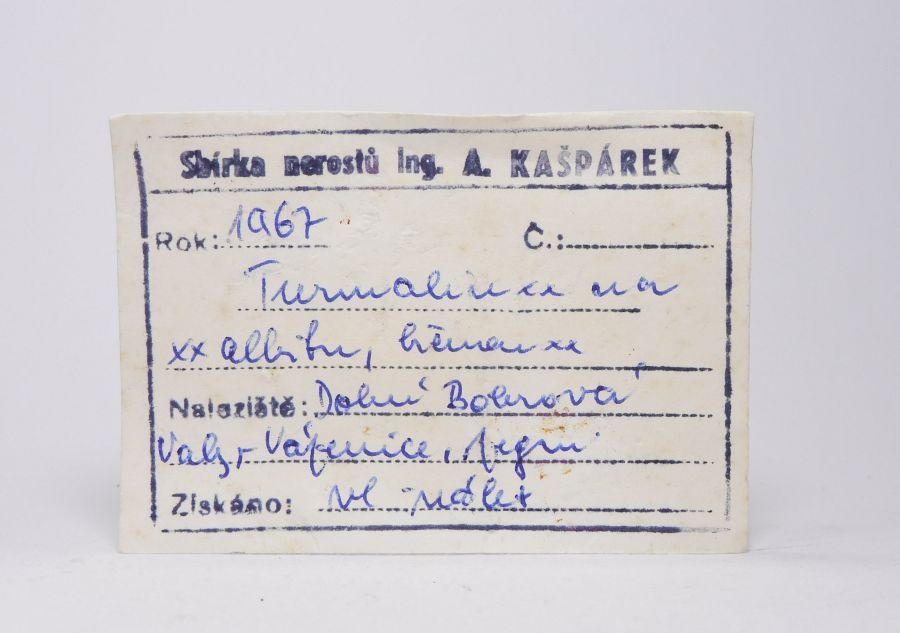 Sbírka nerostů Ing. A. KAŠPÁREK
Rok: 1967 Č.:
Turmalin xx na
xx albitu,
Naleziště: Dolní Bobrová,
Vápenice,
Získáno: vl. nález